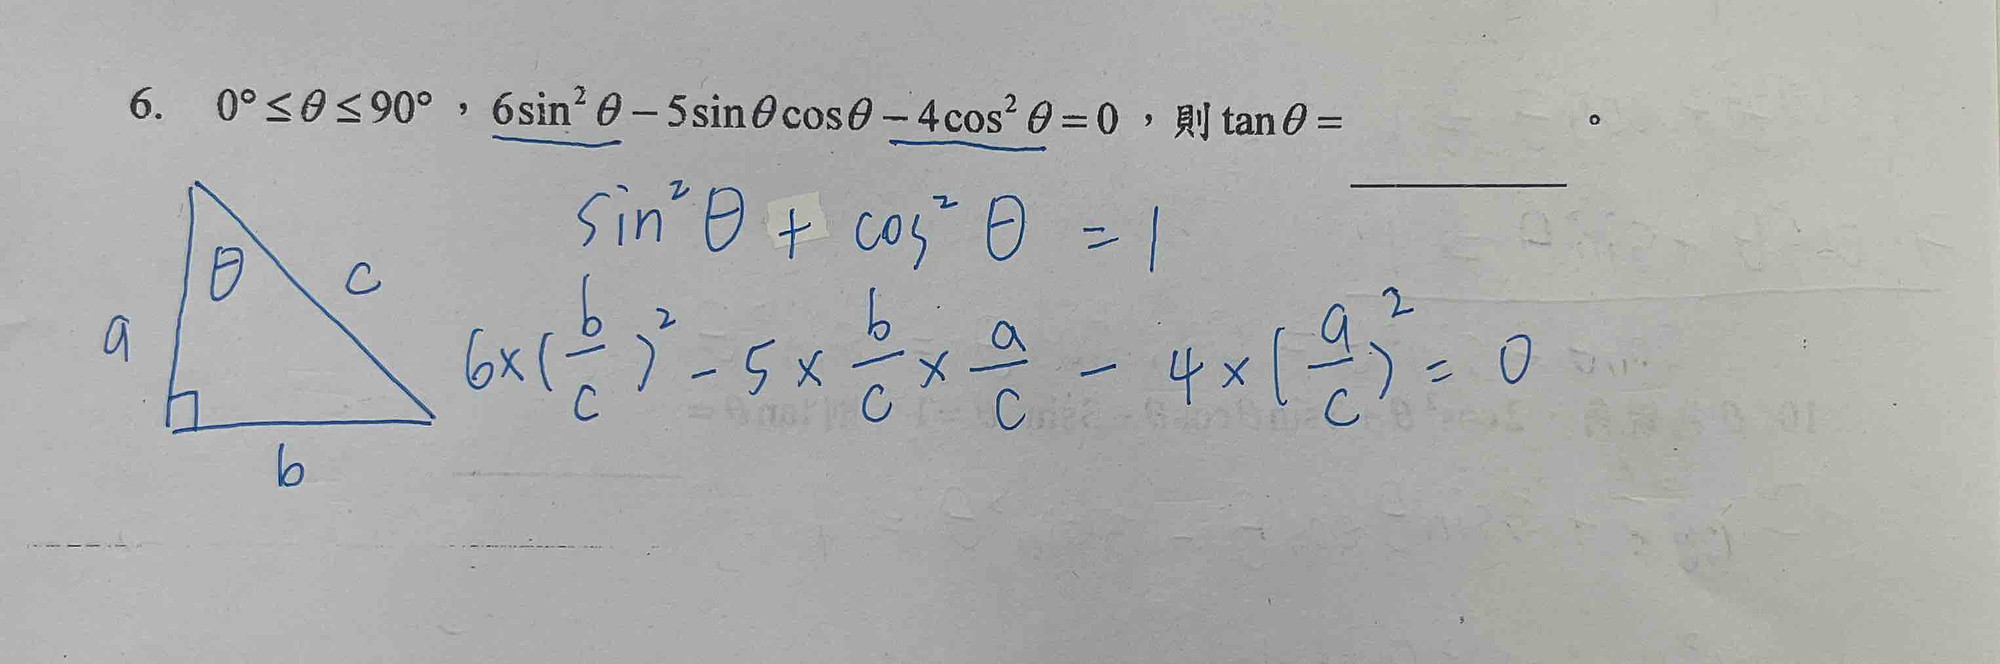 6. 0°≤θ≤90°，6sin²θ−5sinθcosθ−4cos²θ=0，則tanθ=＿＿＿＿。
sin²θ + cos²θ = 1
θ
c
a
6×(b/c)² - 5×b/c×a/c - 4×(a/c)² = 0
b